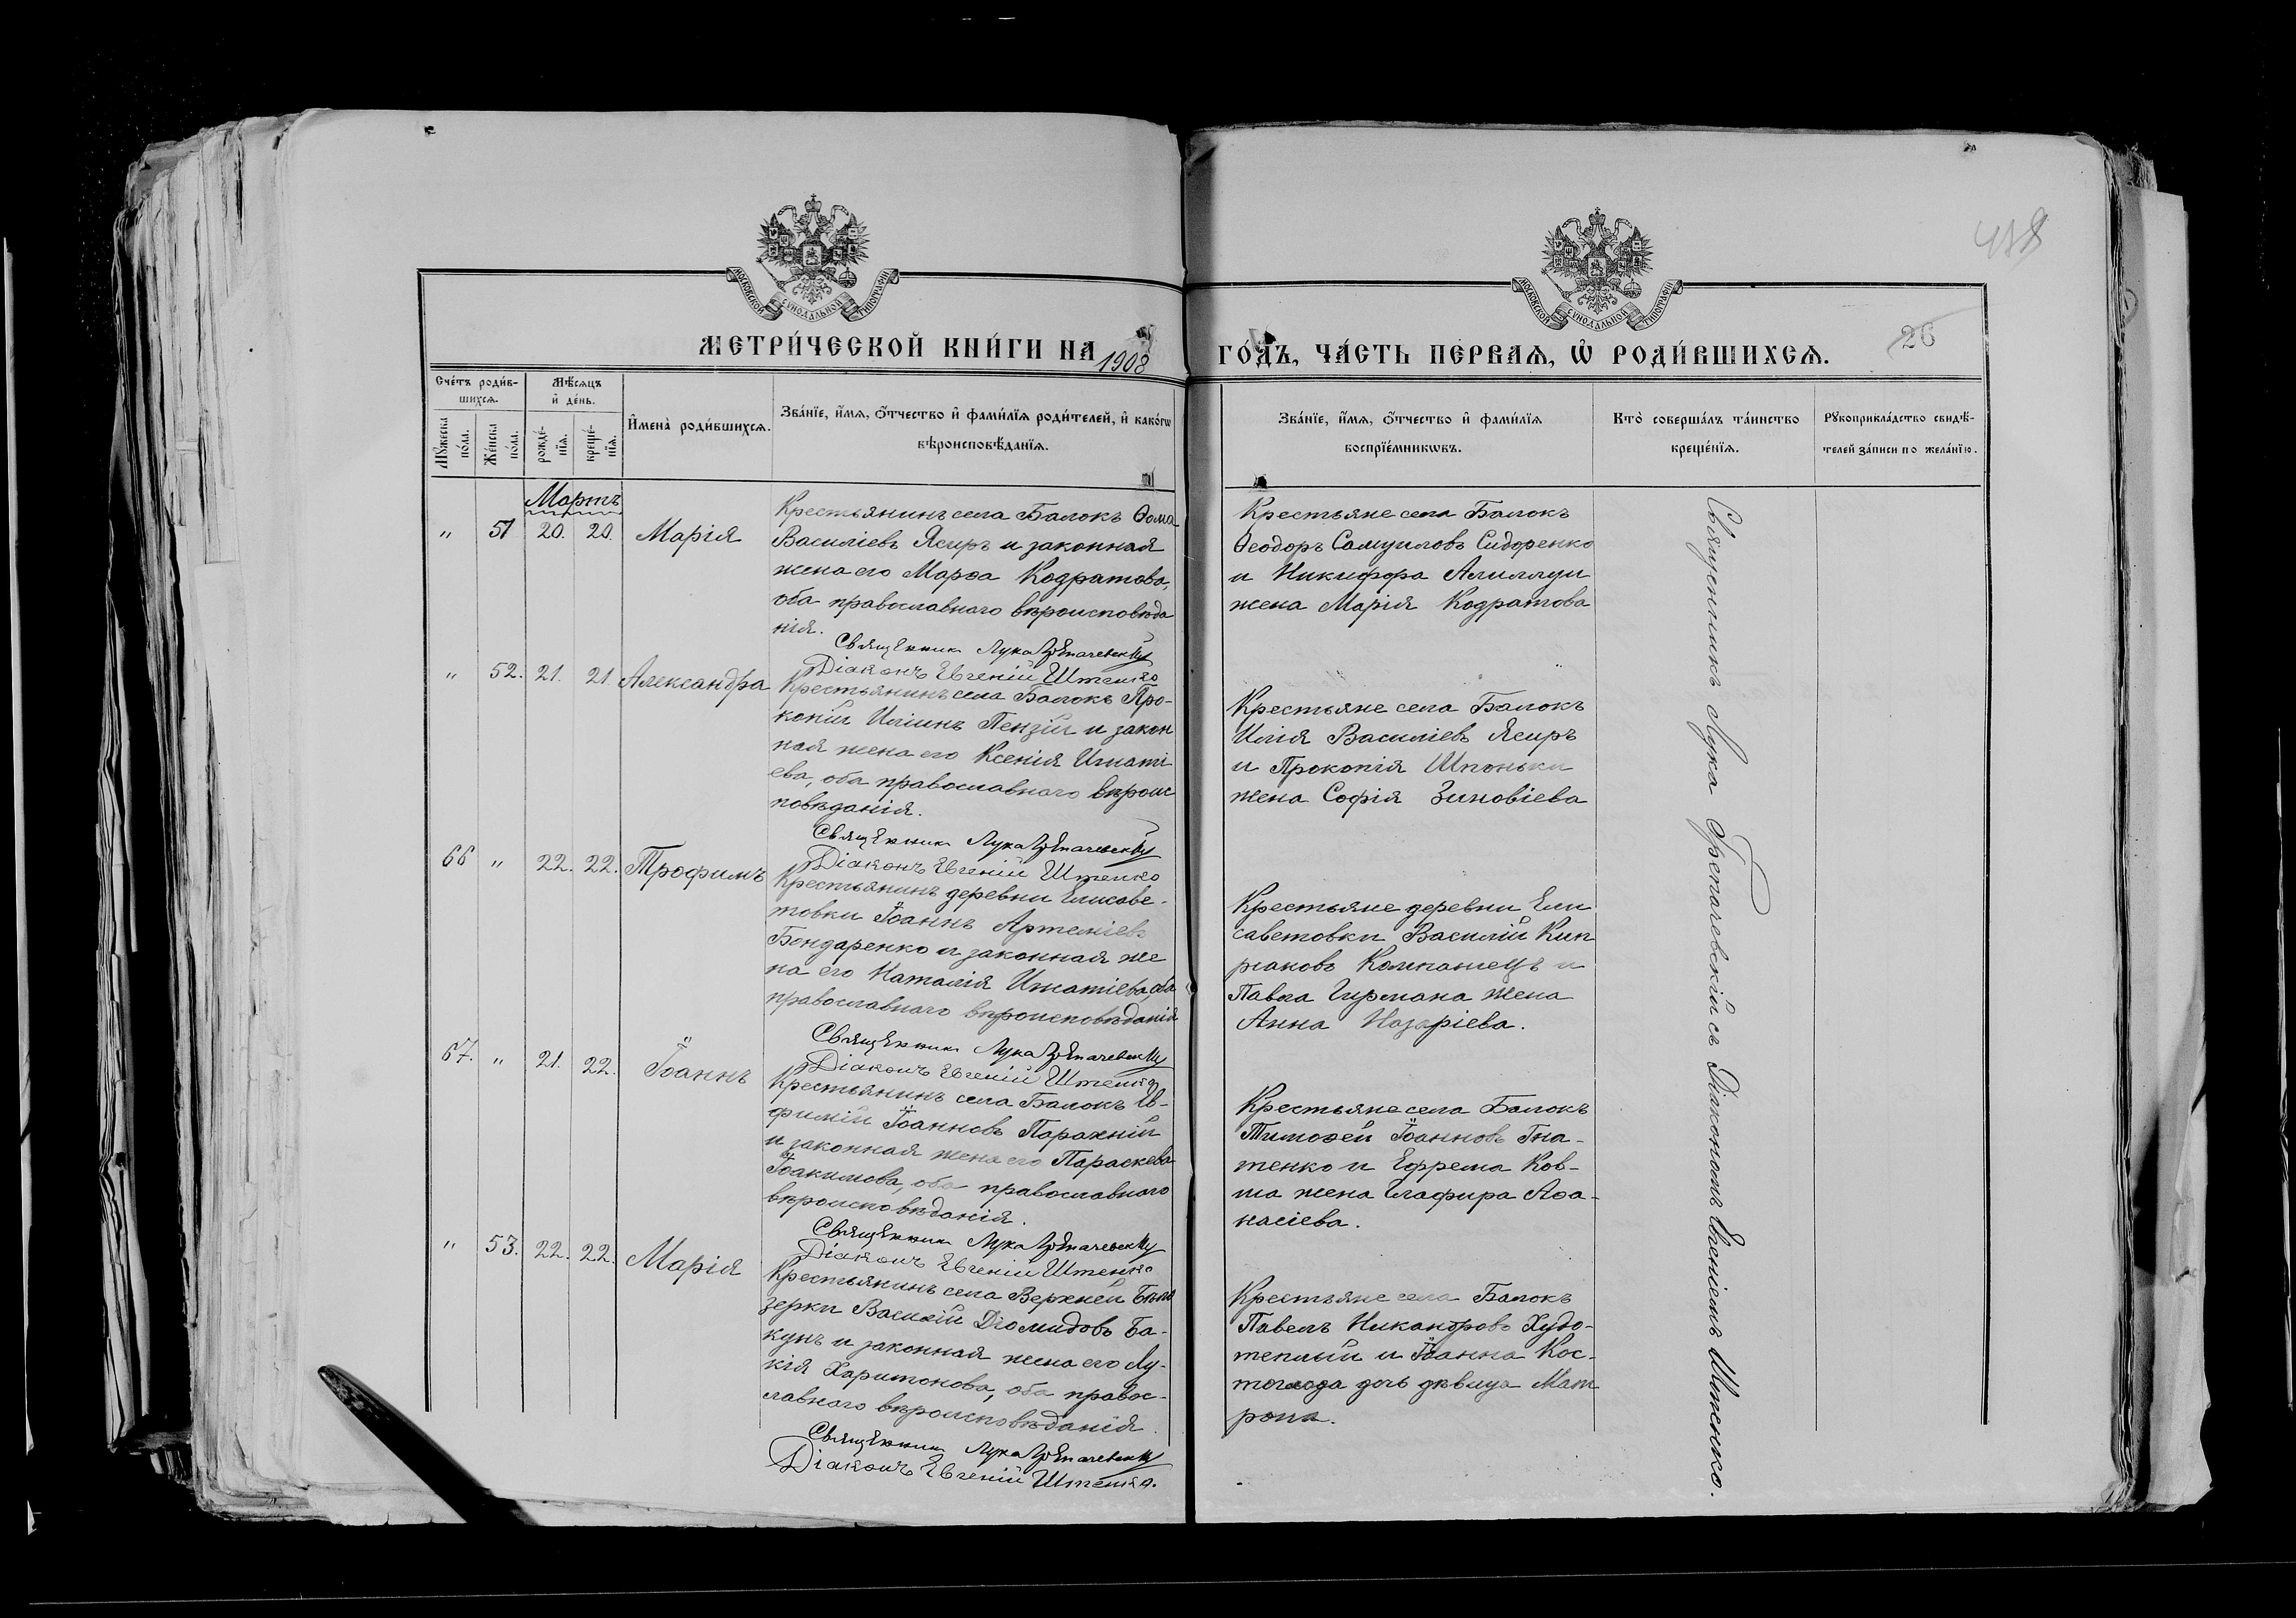 438
МОСКОВСКОЙ СѴНОДАЛЬНОЙ ТИПОГРАФІИ
МОСКОВСКОЙ СѴНОДАЛЬНОЙ ТИПОГРАФІИ
МЕТРИ́ЧЕСКОЙ КНИ́ГИ НА 1908 ГО́ДЪ, ЧА́СТЬ ПЕ́РВАѦ, Ѡ҆ РОДИ́ВШИХСѦ.
26
Сче́тъ роди́в-
шихсѧ.
Мꙋ́жеска
по́ла.
Же́нска
по́ла.
Мѣ́сѧцъ
и҆ де́нь.
рожде́-
нїѧ.
креще́-
нїѧ.
И҆мена̀ роди́вшихсѧ.
Зва́нїе, и҆́мѧ, ѻ҆́тчество и҆ фами́лїѧ роди́телей, и҆ како́гѡ
вѣроисповѣ́данїѧ.
Зва́нїе, и҆́мѧ, ѻ҆́тчество и҆ фами́лїѧ
воспрїе́мникѡвъ.
Кто̀ соверша́лъ та́инство
креще́нїѧ.
Рꙋкоприкла́дство свидѣ́-
телей за́писи по жела́нїю.
Мартъ
" 51 20. 20. Марія
Крестьянинъ села Балокъ Ѳома
Василіевъ Ясиръ и законная
жена его Марѳа Кодратова,
оба православнаго вѣроисповѣда
нія.
Священникъ Лука Грепачевскій
Діаконъ Евгеній Штенко
Крестьяне села Балокъ
Ѳеодоръ Самуиловъ Сидоренко
и Никифора Алиллуи
жена Марія Кодратова
" 52. 21. 21. Александра
Крестьянинъ села Балокъ Про-
копій Иліинъ Пензій и закон
ная жена его Ксенія Игнаті
ева, оба православнаго вѣроис
повѣданія.
Священникъ Лука Грепачевскій
Діаконъ Евгеній Штенко
Крестьяне села Балокъ
Илія Василіевъ Ясиръ
и Прокопія Шпоньки
жена Софія Зиновіева
66 " 22. 22. Трофимъ
Крестьянинъ деревни Елисаве-
товки Іоаннъ Артеміевъ
Бондаренко и законная же
на его Наталія Игнатіева, оба
православнаго вѣроисповѣданія
Священникъ Лука Грепачевскій
Діаконъ Евгеній Штенко
Крестьяне деревни Ели
саветовки Василій Кип
ріановъ Компанецъ и
Павла Гирмана жена
Анна Назаріева.
67. " 21. 22. Іоаннъ
Крестьянинъ села Балокъ Ев-
фимій Іоанновъ Парахній
и законная жена его Параскева
Іоакимова, оба православнаго
вѣроисповѣданія.
Священникъ Лука Грепачевскій
Діаконъ Евгеній Штенко
Крестьяне села Балокъ
Тимоѳей Іоанновъ Гна-
тенко и Ефрема Ков-
ша жена Глафира Аѳа-
насіева.
" 53. 22. 22. Марія
Крестьянинъ села Верхней Бѣло
зерки Василій Діомидовъ Ба-
кунъ и законная жена его Лу-
кія Харитонова, оба правос-
лавнаго вѣроисповѣданія.
Священникъ Лука Грепачевскій
Діаконъ Евгеній Штенко.
Крестьяне села Балокъ
Павелъ Никандровъ Худо-
теплый и Іоанна Кос-
тогрода дочь дѣвица Мат
рона.
Священникъ Лука Грепачевскій съ Діакономъ Евгеніемъ Штенко.